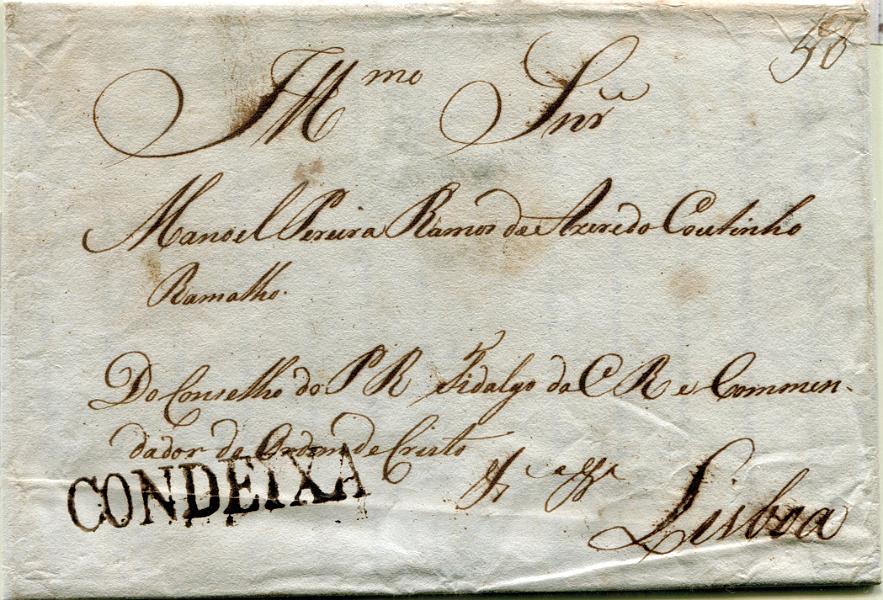 50
Illmo Snr
Manoel Pereira Ramos de Azeredo Coutinho
Ramalho.
Do Conselho do P R Fidalgo da C R e Commen-
dador da Ordem de Cristo
CONDEIXA
Lisboa